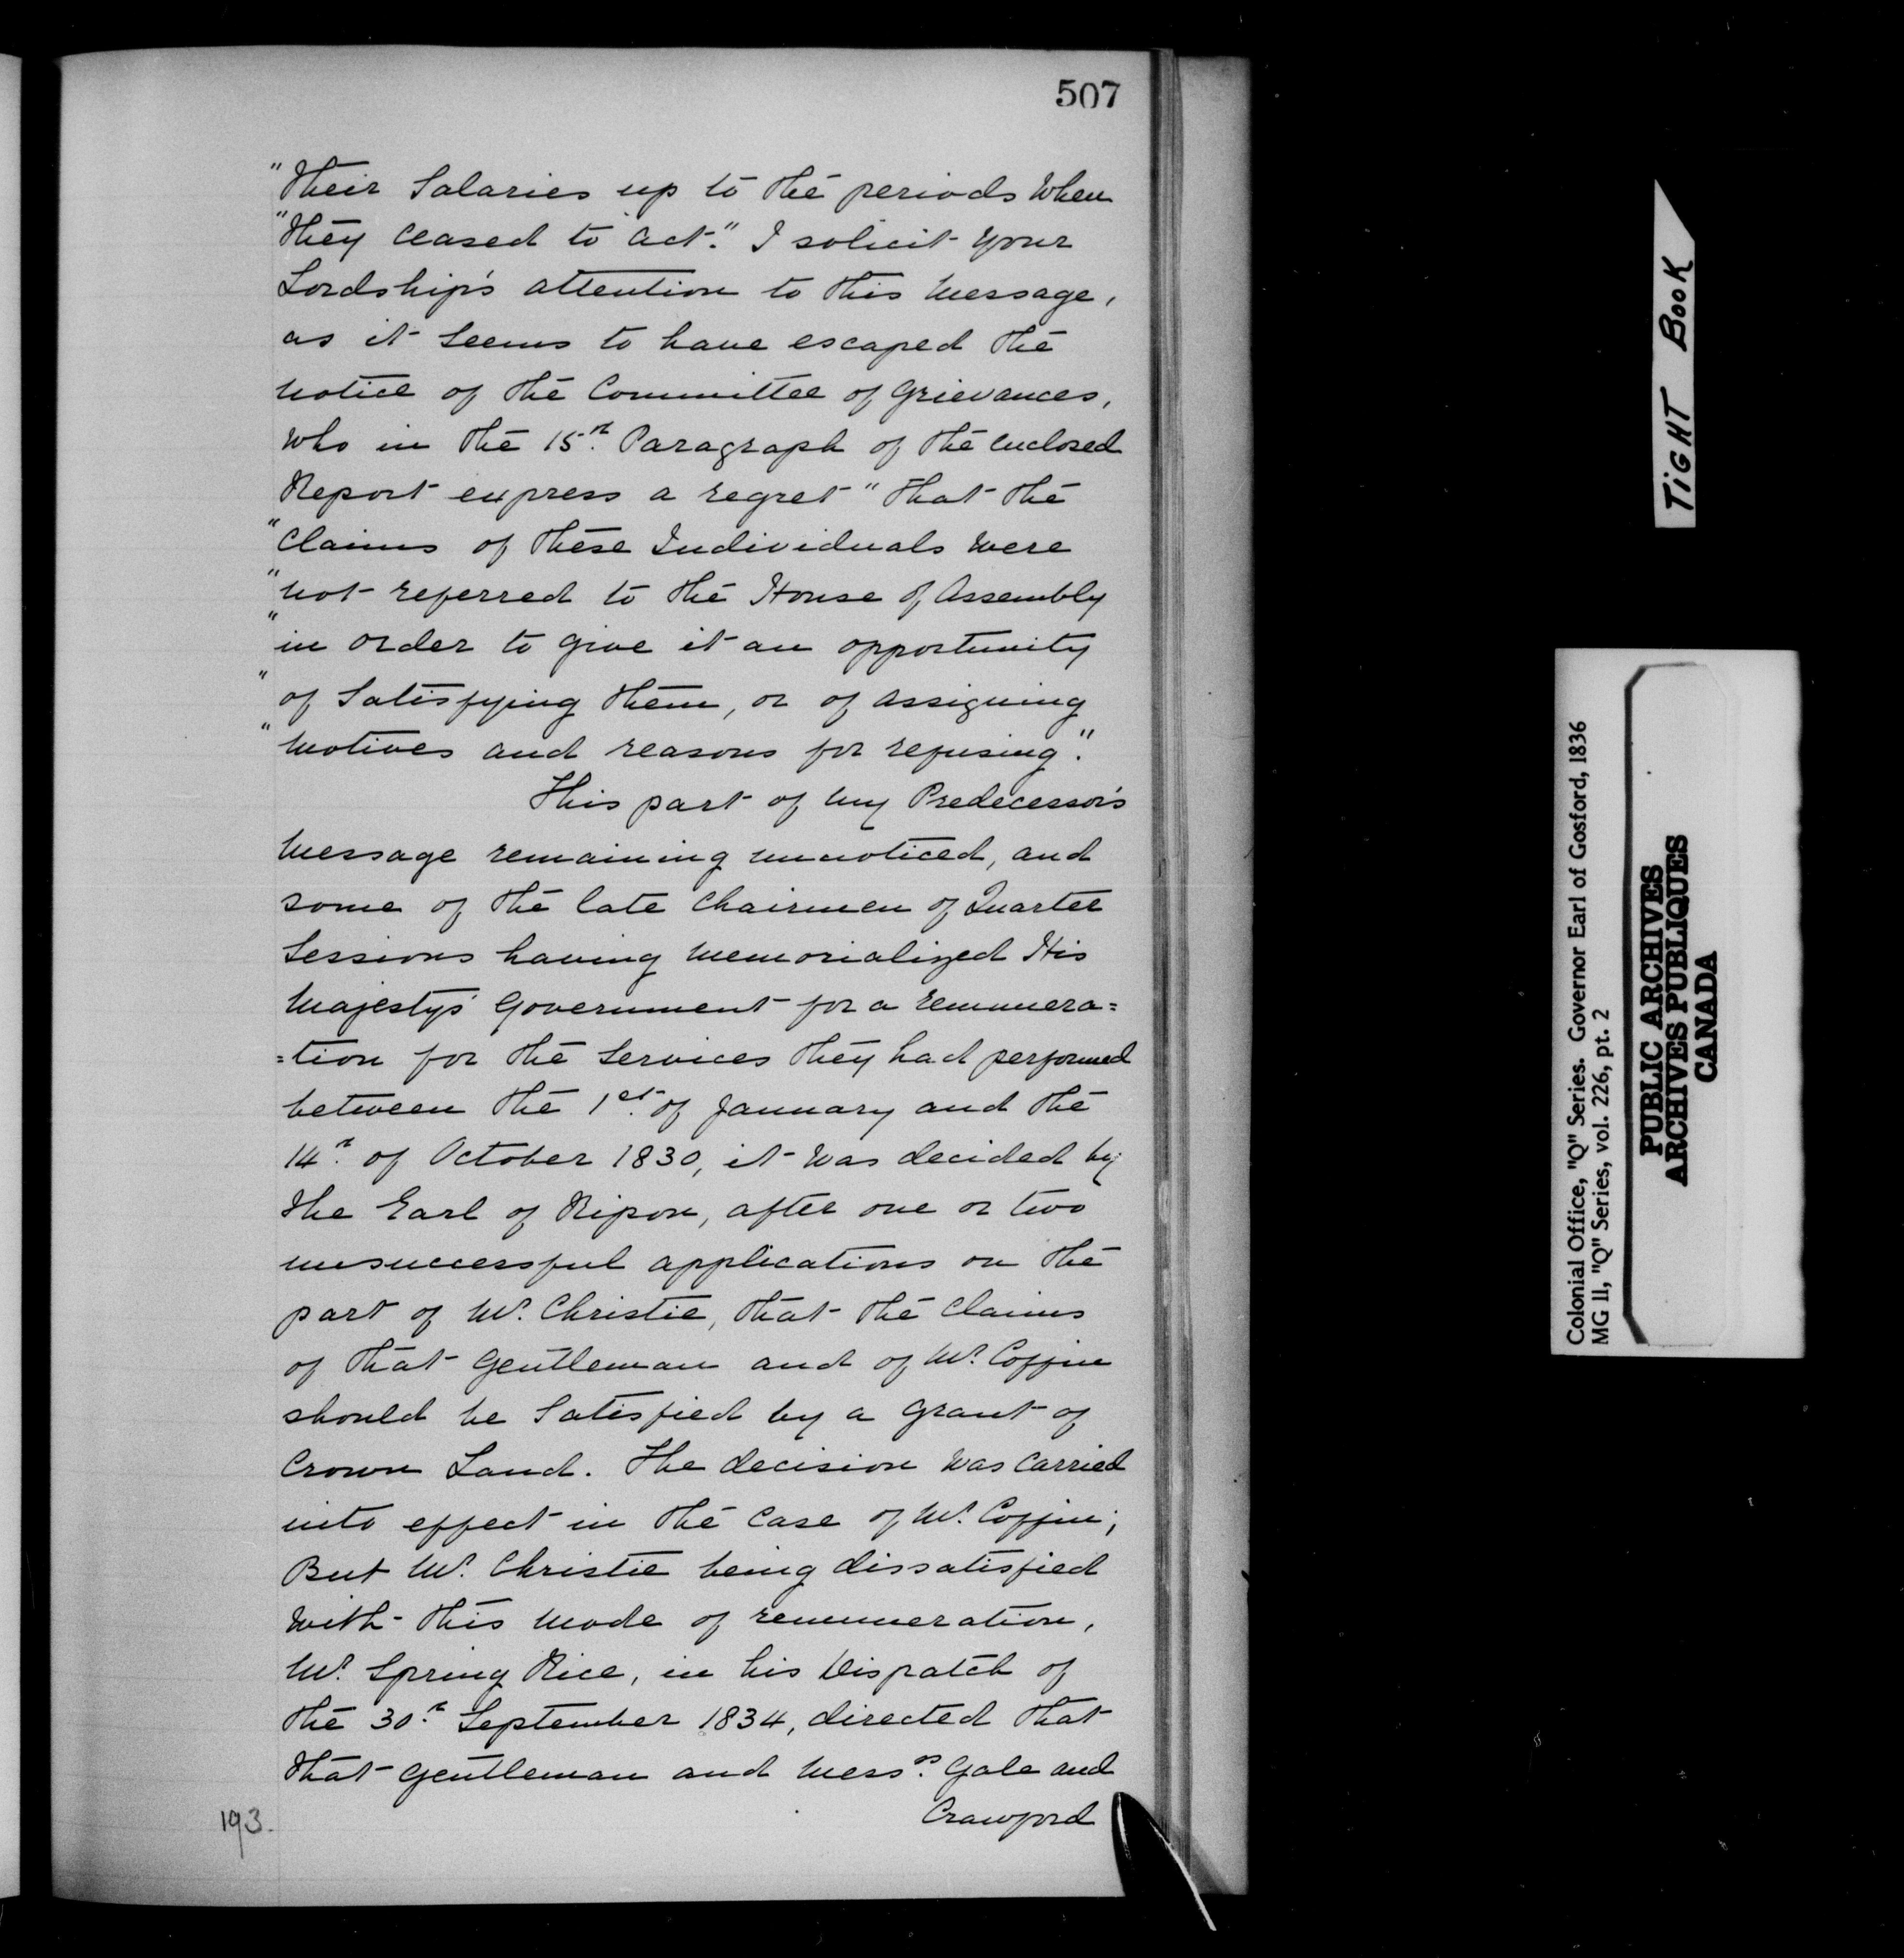 507
"Their Salaries up to the periods when
"they ceased to act." I solicit your
Lordship's attention to this Message,
as it seems to have escaped the
notice of the Committee of Grievances,
who in the 15th. Paragraph of the enclosed
Report express a regret "that the
"Claims of these Individuals were
"not referred to the House of Assembly
"in order to give it an opportunity
"of Satisfying them, or of assigning
"motives and reasons for refusing".
This part of my Predecessor's
Message remaining unnoticed, and
some of the late Chairmen of Quarter
Sessions having memorialized His
Majesty's Government for a remunera=
=tion for the Services they had performed
between the 1st. of January and the
14th. of October 1830, it was decided by
the Earl of Ripon, after one or two
unsuccessful applications on the
part of Mr. Christie, that the Claims
of that Gentleman and of Mr. Coffin
should be Satisfied by a grant of
Crown Land. The decision was carried
into effect in the Case of Mr. Coffin;
But Mr. Christie being dissatisfied
with this mode of remuneration,
Mr. Spring Rice, in his Dispatch of
the 30th. September 1834, directed that
that Gentleman and Messrs. Gale and
Crawford
193.
TIGHT BOOK
Colonial Office, "Q" Series. Governor Earl of Gosford, 1836
MG 11, "Q" Series, vol. 226, pt. 2
PUBLIC ARCHIVES
ARCHIVES PUBLIQUES
CANADA